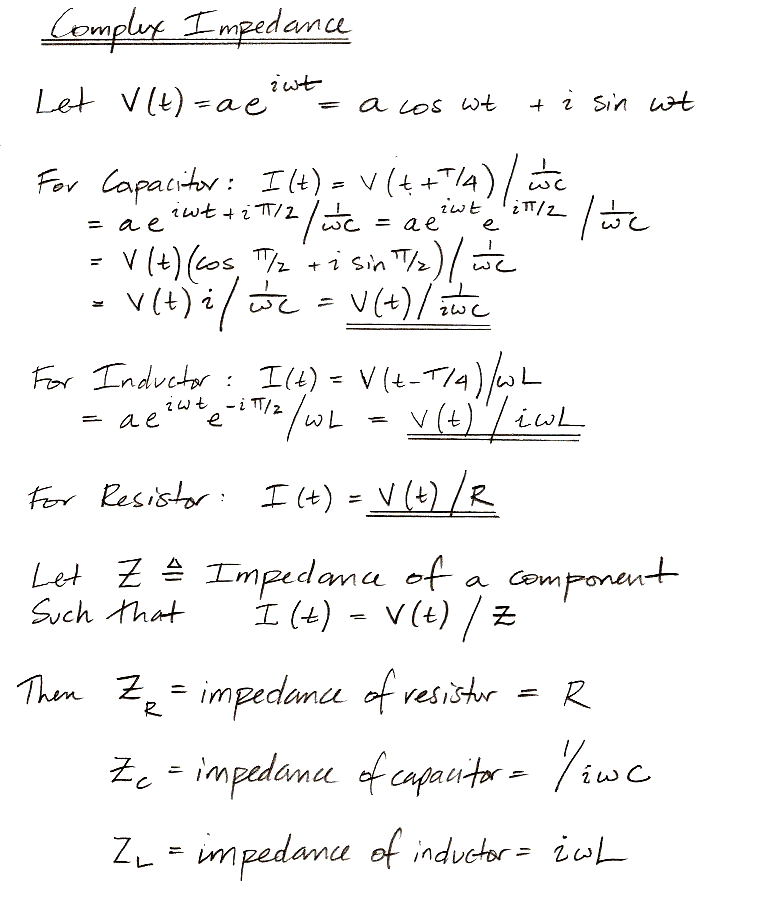 Complex Impedance
Let V(t) = ae^{iωt} = a cos ωt + i sin ωt
For Capacitor: I(t) = V(t + T/4) / \frac{1}{ωC}
= ae^{iωt + iπ/2} / \frac{1}{ωC} = ae^{iωt} e^{iπ/2} / \frac{1}{ωC}
= V(t)(cos π/2 + i sin π/2) / \frac{1}{ωC}
= V(t) i / \frac{1}{ωC} = V(t) / \frac{1}{iωC}
For Inductor: I(t) = V(t - T/4) / ωL
= ae^{iωt} e^{-iπ/2} / ωL = V(t) / iωL
For Resistor: I(t) = V(t) / R
Let Z ≜ Impedance of a component
Such that I(t) = V(t) / Z
Then Z_R = impedance of resistor = R
Z_C = impedance of capacitor = 1/iωC
Z_L = impedance of inductor = iωL